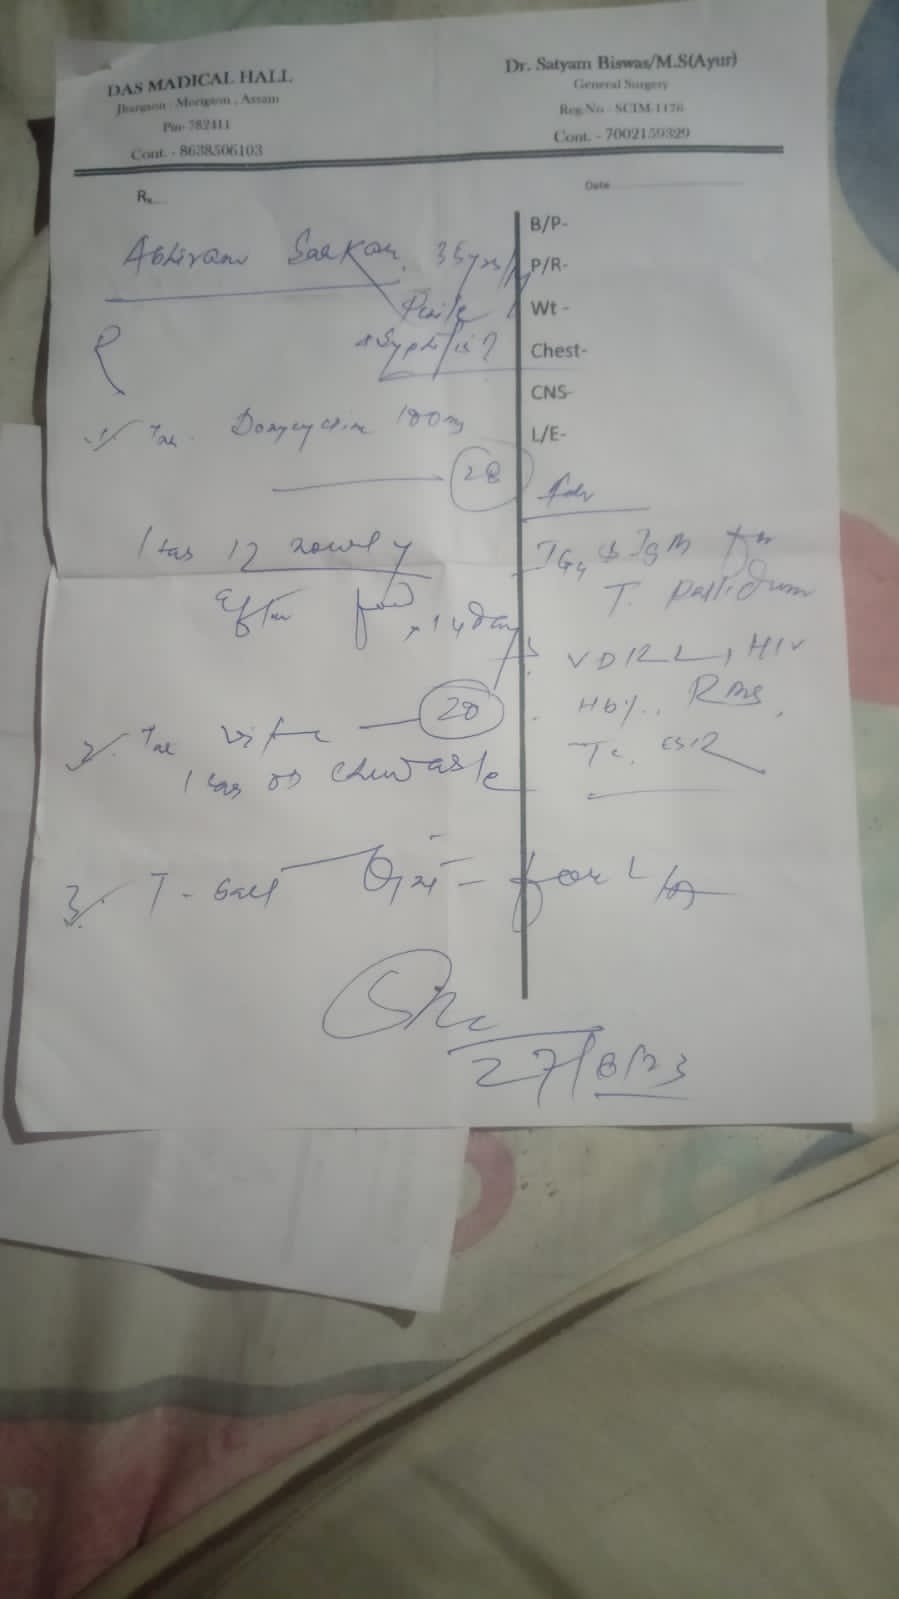 DAS MADICAL HALL
Jhargaon - Morigaon, Assam
Pin- 782411
Cont. - 8638506103
Dr. Satyam Biswas/M.S(Ayur)
General Surgery
Reg.No - SCIM-1176
Cont. - 7002159329
Rx.....
Date
35 yrs/
syphilis?
1. Tab. Doxycycline 100mg
28
1 tab 12 hourly
after food
x 14 days
2. Tab
28
1 tab OD chewable
3. T-Bact Oint - for L/A
B/P-
P/R-
Wt -
Chest-
CNS-
L/E-
Adv
IgG & IgM for
T. pallidum
VDRL, HIV
Hb%, RBS,
Tc, ESR
27/8/23